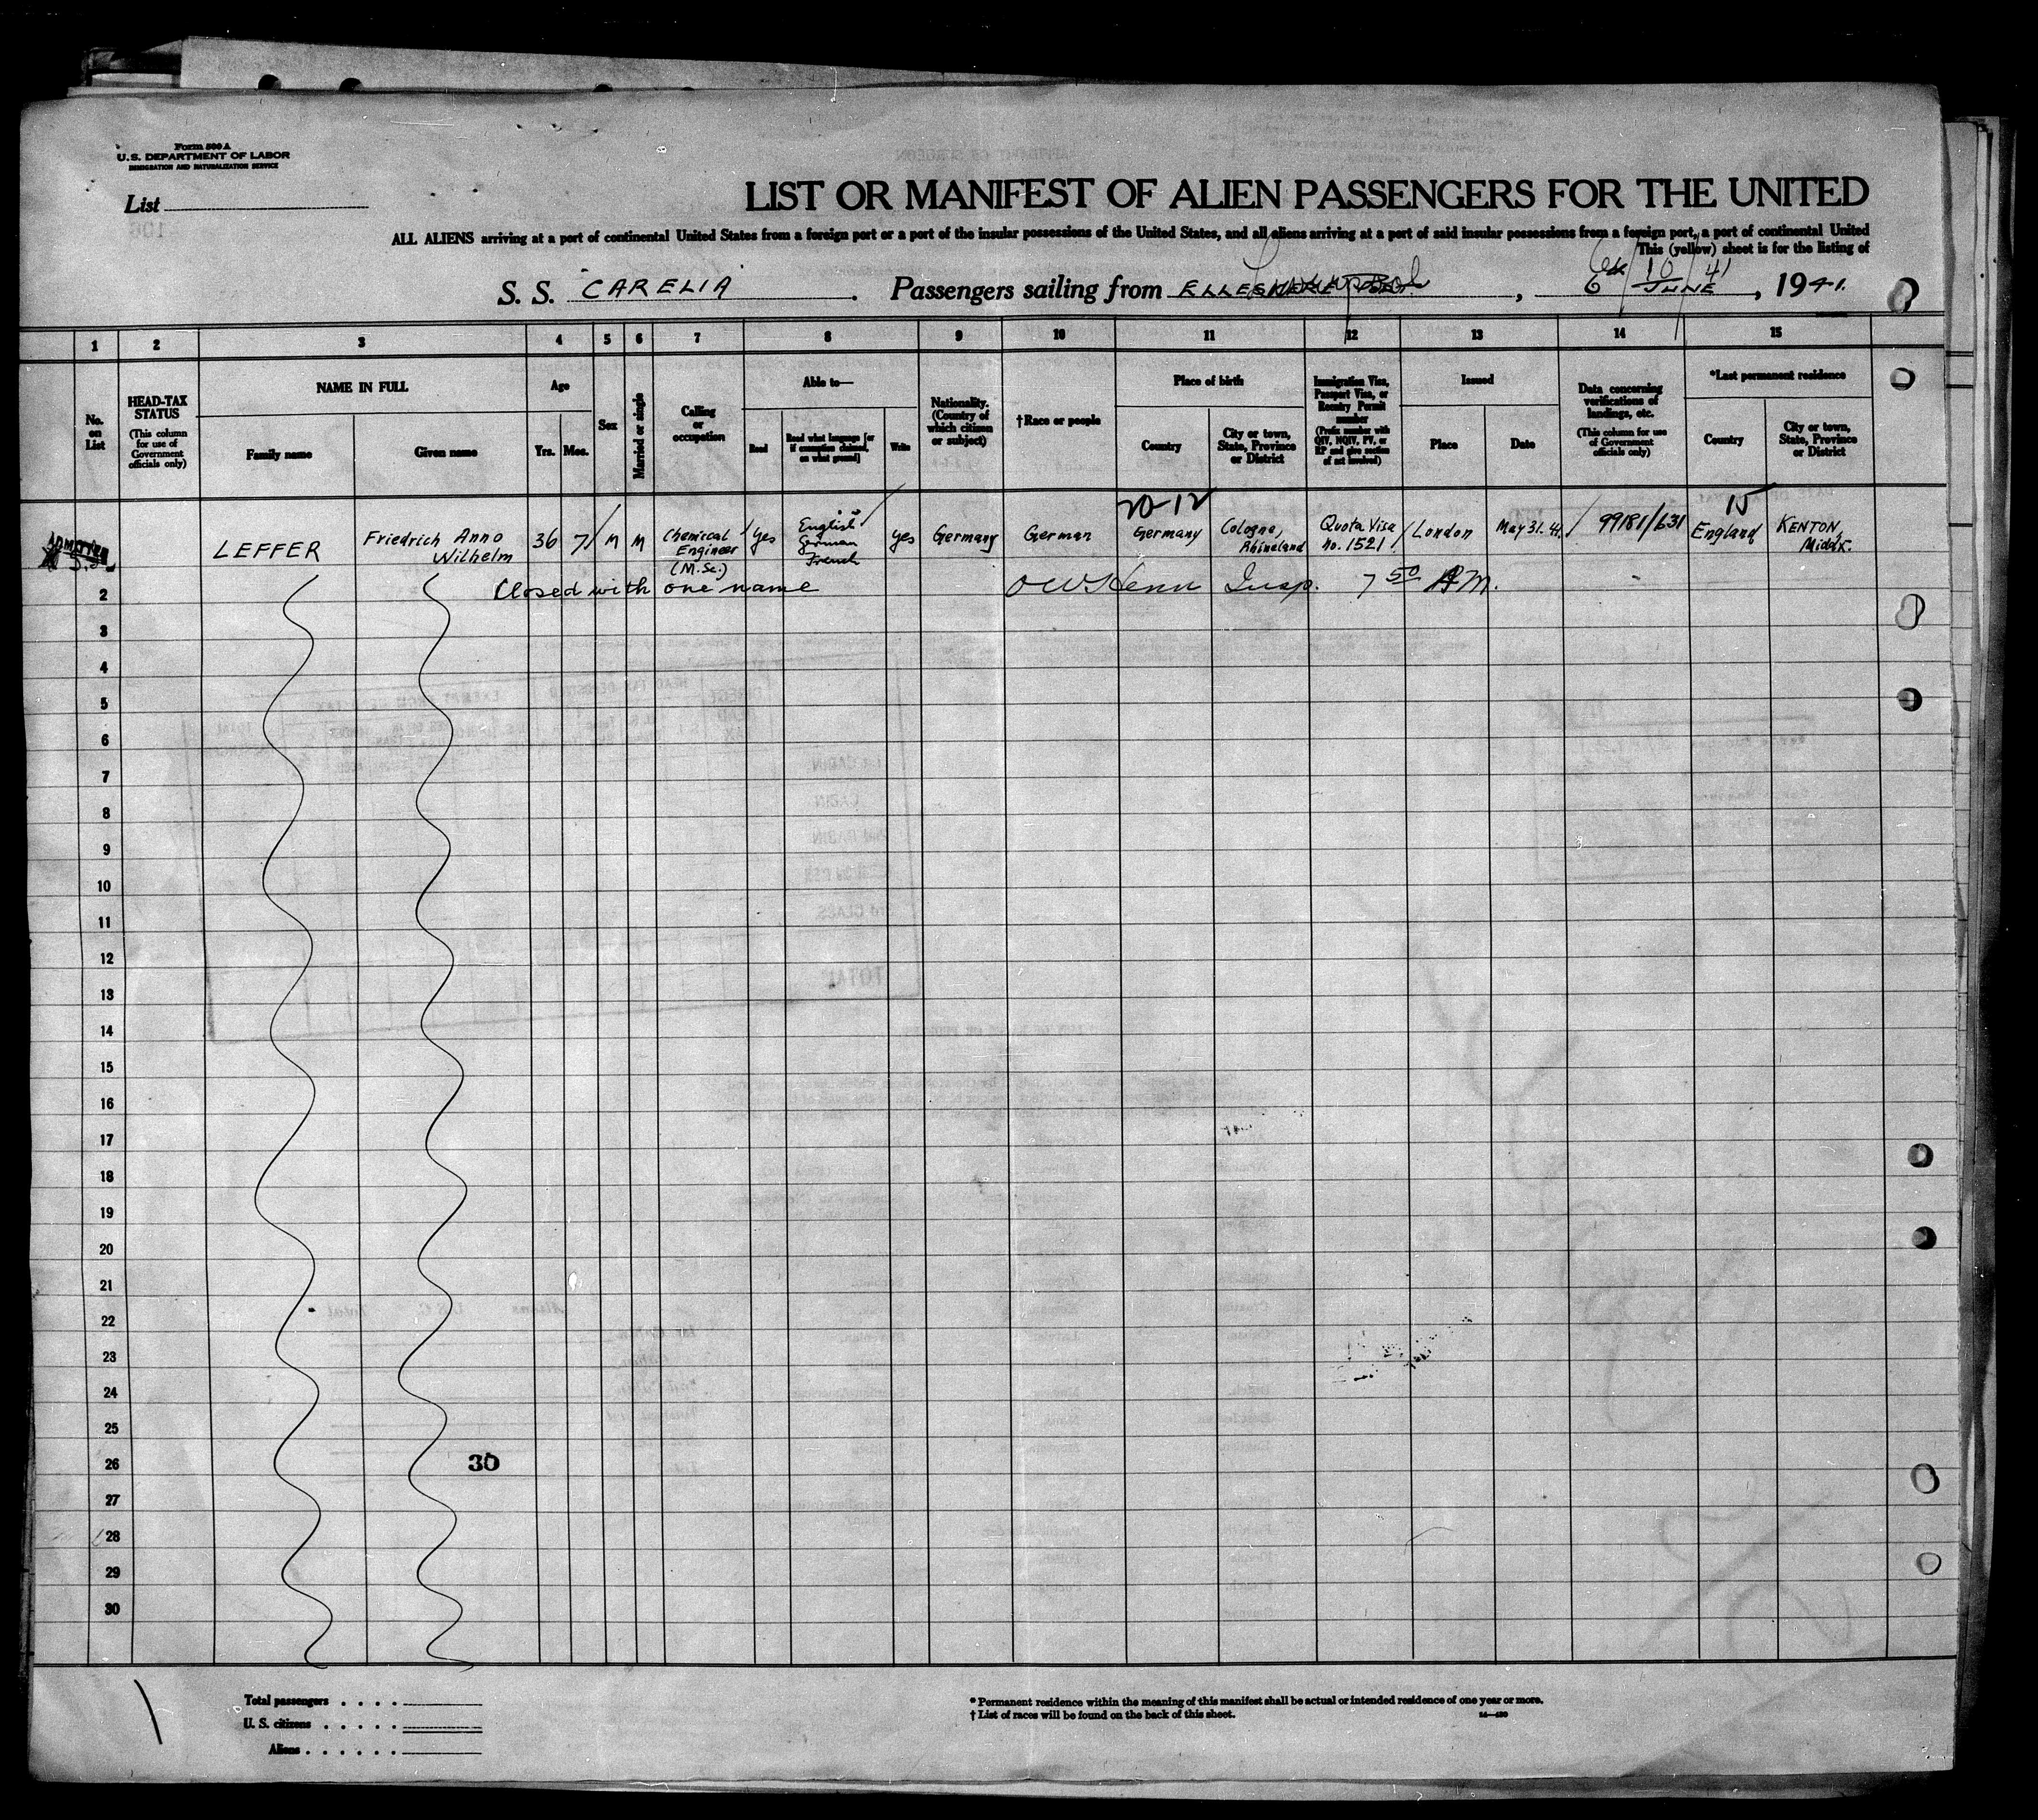 Form 500 A
U.S. DEPARTMENT OF LABOR
IMMIGRATION AND NATURALIZATION SERVICE
List
LIST OR MANIFEST OF ALIEN PASSENGERS FOR THE UNITED
ALL ALIENS arriving at a port of continental United States from a foreign port or a port of the insular possessions of the United States, and all aliens arriving at a port of said insular possessions from a foreign port, a port of continental United
This (yellow) sheet is for the listing of
S. S. "CARELIA". Passengers sailing from , 6 JUNE, 1941.
10 / 41
1 2 3 4 5 6 7 8 9 10 11 12 13 14 15
No. on List
HEAD-TAX STATUS
(This column for use of Government officials only)
NAME IN FULL
Family name
Given name
Age
Yrs.
Mos.
Sex
Married or single
Calling or occupation
Able to—
Read
Read what language [or if exemption claimed, on what ground]
Write
Nationality. (Country of which citizen or subject)
†Race or people
Place of birth
Country
City or town, State, Province or District
Immigration Visa, Passport Visa, or Reentry Permit number
(Prefix number with QIV, NQIV, PV, or RP and give section of act involved)
Issued
Place
Date
Data concerning verifications of landings, etc.
(This column for use of Government officials only)
*Last permanent residence
Country
City or town, State, Province or District
20-12
15
ADMITTED
LEFFER Friedrich Anno Wilhelm 36 7 M M Chemical Engineer (M.Sc.) Yes English German French yes Germany German Germany Cologne, Rhineland Quota Visa No. 1521 London May 31. 41. 99181/631 England KENTON, Middx.
2 Closed with one name Insp. 7 50 AM.
3
4
5
6
7
8
9
10
11
12
13
14
15
16
17
18
19
20
21
22
23
24
25
26 30
27
28
29
30
Total passengers . . . .
U. S. citizens . . . . .
Aliens . . . . . .
* Permanent residence within the meaning of this manifest shall be actual or intended residence of one year or more.
† List of races will be found on the back of this sheet.